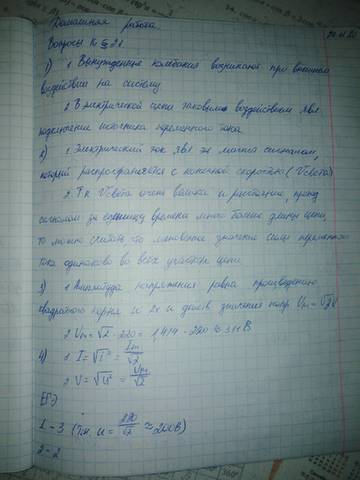 Домашняя работа
Вопросы к § 21
1) 1 Вынужденные колебания возникают при внешнем
воздействии на систему
2 В электрической цепи таковым воздействием явл
подключение источника переменного тока
2) 1 Электрический ток явл эл магнит сигналом,
который распространяется с конечной скоростью (Vсвета)
2 Т.к Vсвета очень велика и расстояние, проход
сигналом за единицу времени много больше длины цепи,
то можно считать что мгновенное значение силы переменного
тока одинаково во всех участках цепи
3) 1 Амплитуда напряжения равна произведению
квадратного корня из 2х и действ значения напр Um = √2U
2 Um = √2 · 220 = 1,414 · 220 ≈ 311В
4) 1 I = √i² = Im/√2
2 U = √U² = Um/√2
ЕГЭ
1 - 3 (т.к. u = 280/√2 ≈ 200В)
2 - 2